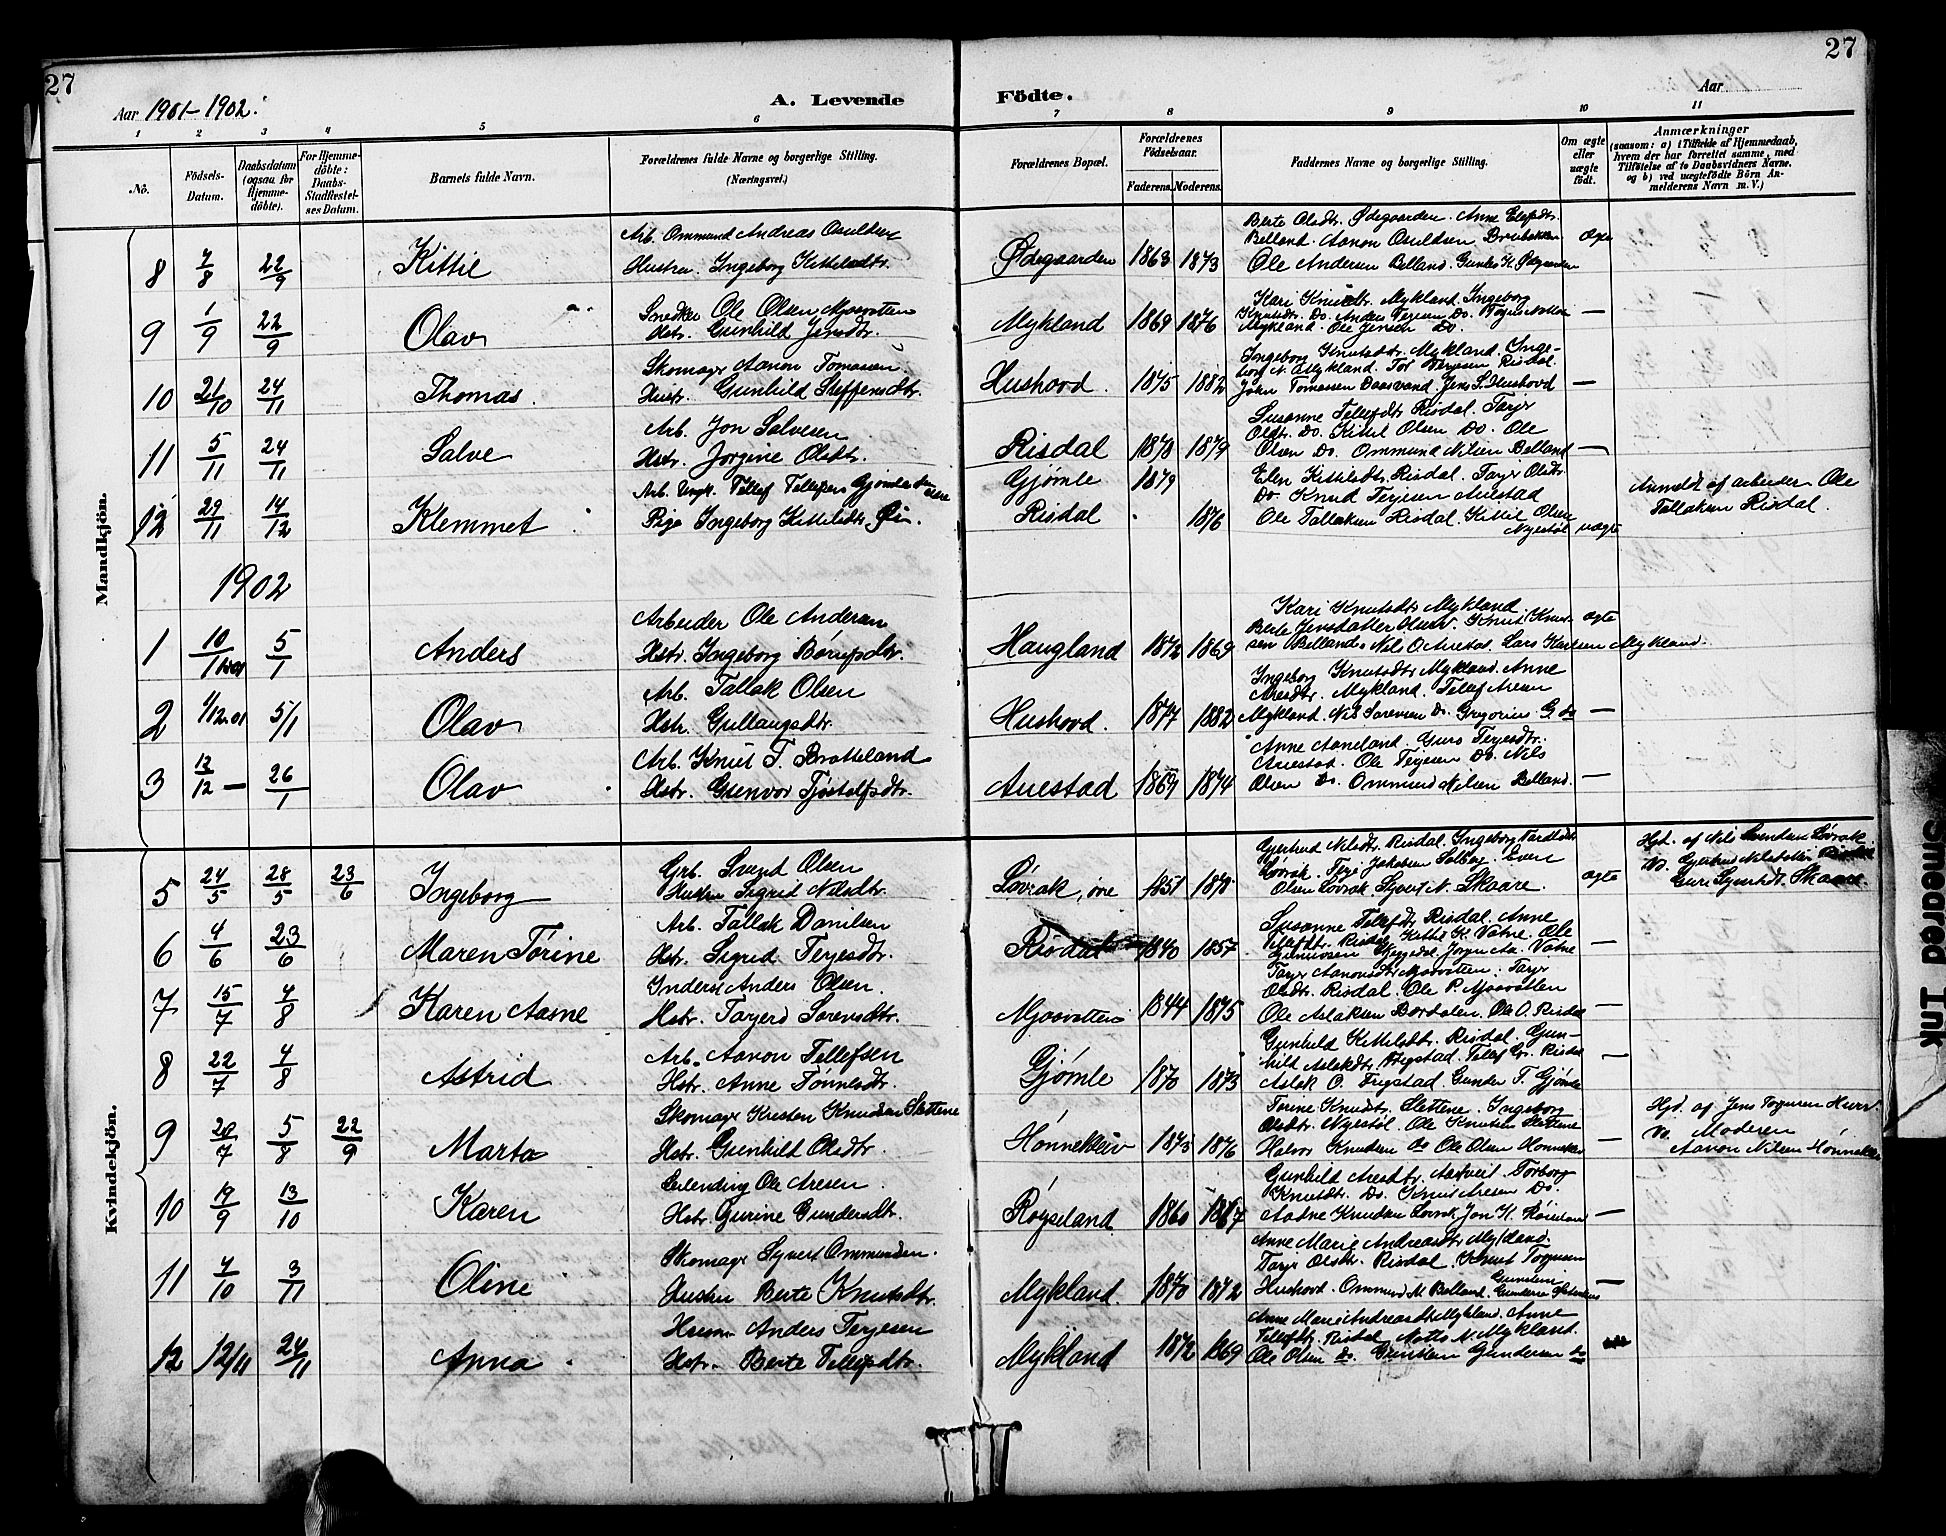 27
27
Aar 1901-1902.
A. Levende Födte.
Aar
1 2 3 4 5 6 7 8 9 10 11
No.
Födsels-Datum.
Daabsdatum (ogsaa for Hjemme-döbte).
For Hjemme-döbte: Daabs-Stadfæstel-ses Datum.
Barnets fulde Navn.
Forældrenes fulde Navne og borgerlige Stilling. (Næringsvei.)
Forældrenes Bopæl.
Forældrenes Födselsaar.
Faderens. Moderens.
Faddernes Navne og borgerlige Stilling.
Om ægte eller uægte födt.
Anmærkninger
(saasom: a) i Tilfælde af Hjemmedaab, hvem der har forrettet samme, med Tilföielse af to Daabsvidners Navne. og b) ved uægtefödte Börn An-melderens Navn m. V.)
Mandkjön.
8 7/8 22/9 Kittil
Arb. Ommund Andreas Osuldsen
Hustru Ingeborg Kittelsdtr.
Ødegaarden 1863 1873
Berte Olsdtr. Ødegaarden. Anne
Belland. Aanon Osuldsen
Ole Andersen Belland. Ødegaarden
ægte
9 1/9 22/9 Olav
Snedker Ole Olsen
Hstr. Gunhild Jensdtr.
Mykland 1869 1876
Kari Knutsdtr. Mykland. Ingeborg
Knutsdtr. Do. Anders Terjesen Do.
Mykland. Ole Jensen Do. —
10 21/10 24/11 Thomas.
Skomager Aanon Tomassen
Hustr. Gunhild Steffensdtr.
Hushovd. 1875 1882
Ingeborg Knutsdtr. Mykland. Inge-
borg N. Mykland. Tor Terjesen Risdal
John Tomassen Daasvand. Jens S. Hushovd —
11 5/11 24/11 Salve
Arb. Jon Salvesen
Hstr. Jorgine Olsdtr.
Risdal 1878 1879
Susanne Tellefsdtr. Risdal. Tarjer
Olsdtr. Do. Kittil Olsen Do. Ole
Olsen Do. Ommund Nilsen Belland —
12 29/11 14/12 Klemmet
Arb. Ungk. Tellef Tellefsen Gjömle
Pige Ingeborg Kittelsdtr.
Gjömle 1879
Risdal 1876
Elen Kittilsdtr. Risdal. Tarjer Olsdtr.
Do. Knud Terjesen Auestad
Ole Tallaksen Risdal. Kittil Olsen
Nystöl uægte
Anmeldt af arbeider Ole
Tallaksen Risdal.
1902
1 10/1 1901 5/1 Anders
Arbeider Ole Andersen
Hstr. Ingeborg
Haugland 1872 1869
Kari Knutsdtr. Mykland
Berte Jensdatter Knut Knut-
sen Belland. Nils O. Auestad. Lars Karlsen Mykland.
ægte
2 1/12.01 5/1 Olav
Arb. Tallak Olsen
Hstr. Gullaugsdtr.
Hushovd. 1877 1882
Ingeborg Knutsdtr. Mykland. Anne
Aresdtr. Mykland. Tellef Aresen
Mykland. Nils Sorensen Do. Gregorius G. Do —
3 12/12 — 26/1 Olav
Arb. Knut T. Bratteland
Hstr. Gunvor Tjöstolfsdtr.
Auestad 1869 1874
Anne Aaneland. Guro Terjesdtr.
Auestad. Ole Terjesen Do. Nils
Olsen Do. Ommund Nilsen Belland. —
Kvindekjön.
5 24/5 28/5 23/6 Ingeborg
Grb. Svend Olsen
Hustru Sigrid Nilsdtr.
Lövrak, öve 1851 1878
Gjertrud Nilsdtr. Risdal. Ingeborg
Lövrak. Terje Jakobsen Solberg. Even
Olsen Lövrak. Syvert N. Skaare.
ægte
Hjd. af Nils Svendsen Lövrak
V. Gjertrud Nilsdatter
Guri Syvertsdt. Skaare.
6 4/6 23/6 Maren Törine
Arb. Tallak Danielsen
Hstr. Sigrid Terjesdtr.
Risdal 1840 1857
Susanne Tellefsdtr. Risdal. Anne
Tellefsdtr. Risdal. Kittil K. Vatne. Ole
Gunuvsen Skjeggedal. Jörgen Aa. Vatne —
7 15/7 4/8 Karen Aasne
Inderst Anders Olsen.
Hstr. Tarjerd Sorensdtr.
Mjaavatten 1844 1875
Tarjer Aanonsdtr. Mjaavatten. Tarjer
Olsdtr. Risdal. Ole P. Mjaavatten
Ole Aslaksen Dordalen. Ole O. Risdal —
8 22/7 4/8 Astrid
Arb. Aanon Tellefsen
Hstr. Anne Tönnesdtr.
Gjömle 1870 1873
Gunhild Kittelsdtr. Risdal. Gun-
hild Aslaksdtr. Frigstad. Tellef Gr. Risdal
Aslak O. Frigstad. Gunder T. Gjömle —
9 20/7 5/8 22/9 Marta
Skomager Kristen Knudsen Slettene
Hstr. Gunhild Olsdtr.
Hönneklöv 1873 1876
Torine Knudsdtr. Slettene. Ingeborg
Olsdtr. Nystöl. Ole Knutsen Slettene
Halvor Knudsen Do Ole Olsen Hönneklöv —
Hjd. af Jens Torjusen
V. Moderen
Aanon Nilsen Hönneklöv
10 19/9 13/10 Karen
Leilending Ole Aresen.
Hstr. Gurine Gundersdtr.
Röyseland 1860 1867
Gunhild Aresdtr. Aasveit. Torborg
Knutsdtr. Do. Knut Aresen Do.
Aadne Knudsen Lövrak. Jon K. Röiseland —
11 7/10 3/11 Oline
Skomager Syvert Ommundsen.
Hustru Berte Knutsdtr.
Mykland. 1870 1872
Anne Marie Andreasdtr. Mykland.
Tarjer Olsdtr. Risdal. Knut Torjusen
Hushovd. Ommund M. Belland. —
12 12/11 24/11 Anna
Husm. Anders Terjesen
Hstr. Berte Tellefsdtr.
Mykland 1872 1869
Anne Marie Andreasdt. Mykland. Anne
Tellefsdtr. Risdal. Notto N. Mykland.
Ole Olsen Do. Gunstein Gundersen Do
Smeared Ink